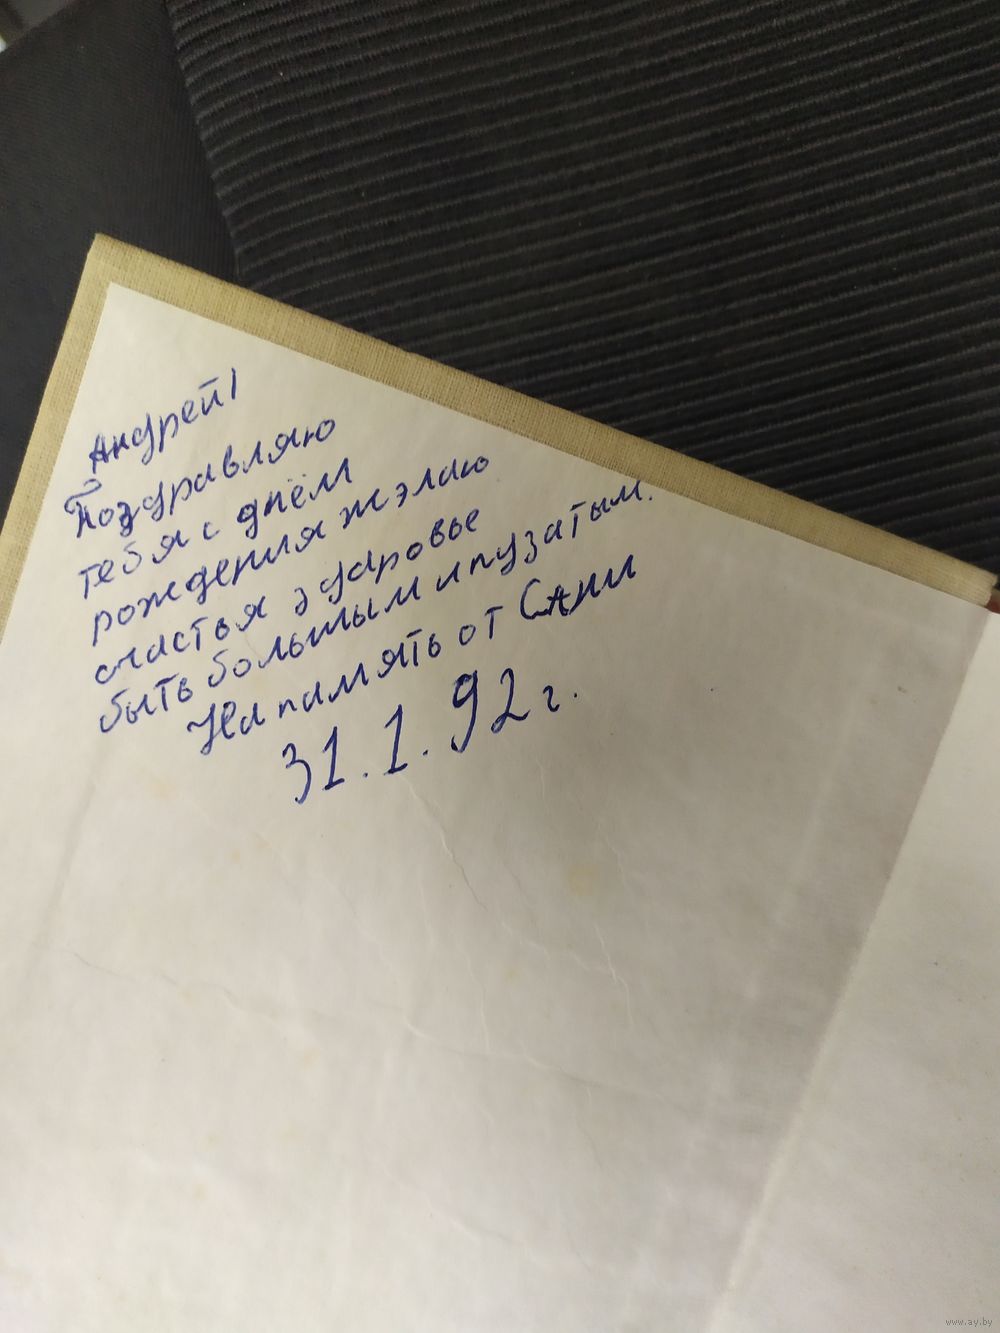 Андрей!
Поздравляю
тебя с днём
рождения жэлаю
счастья здаровье
быть большым и пузатым.
На память от Сани
31.1.92 г.
www.ay.by